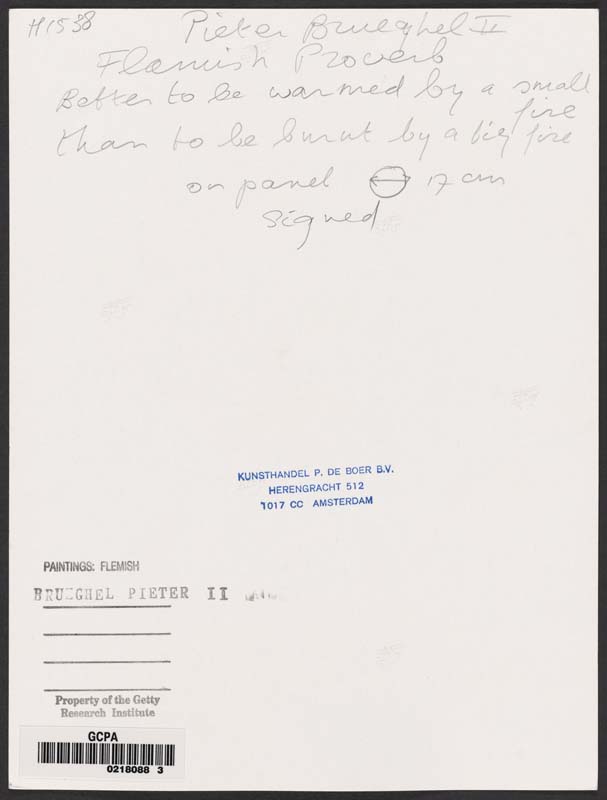 H1538
Pieter Brueghel II
Flemish Proverb
Better to be warmed by a small
fire
than to be burnt by a big fire
on panel 17 cm
signed
KUNSTHANDEL P. DE BOER B.V.
HERENGRACHT 512
1017 CC AMSTERDAM
PAINTINGS: FLEMISH
BRUEGHEL PIETER II
Property of the Getty
Research Institute
GCPA
0218088 3